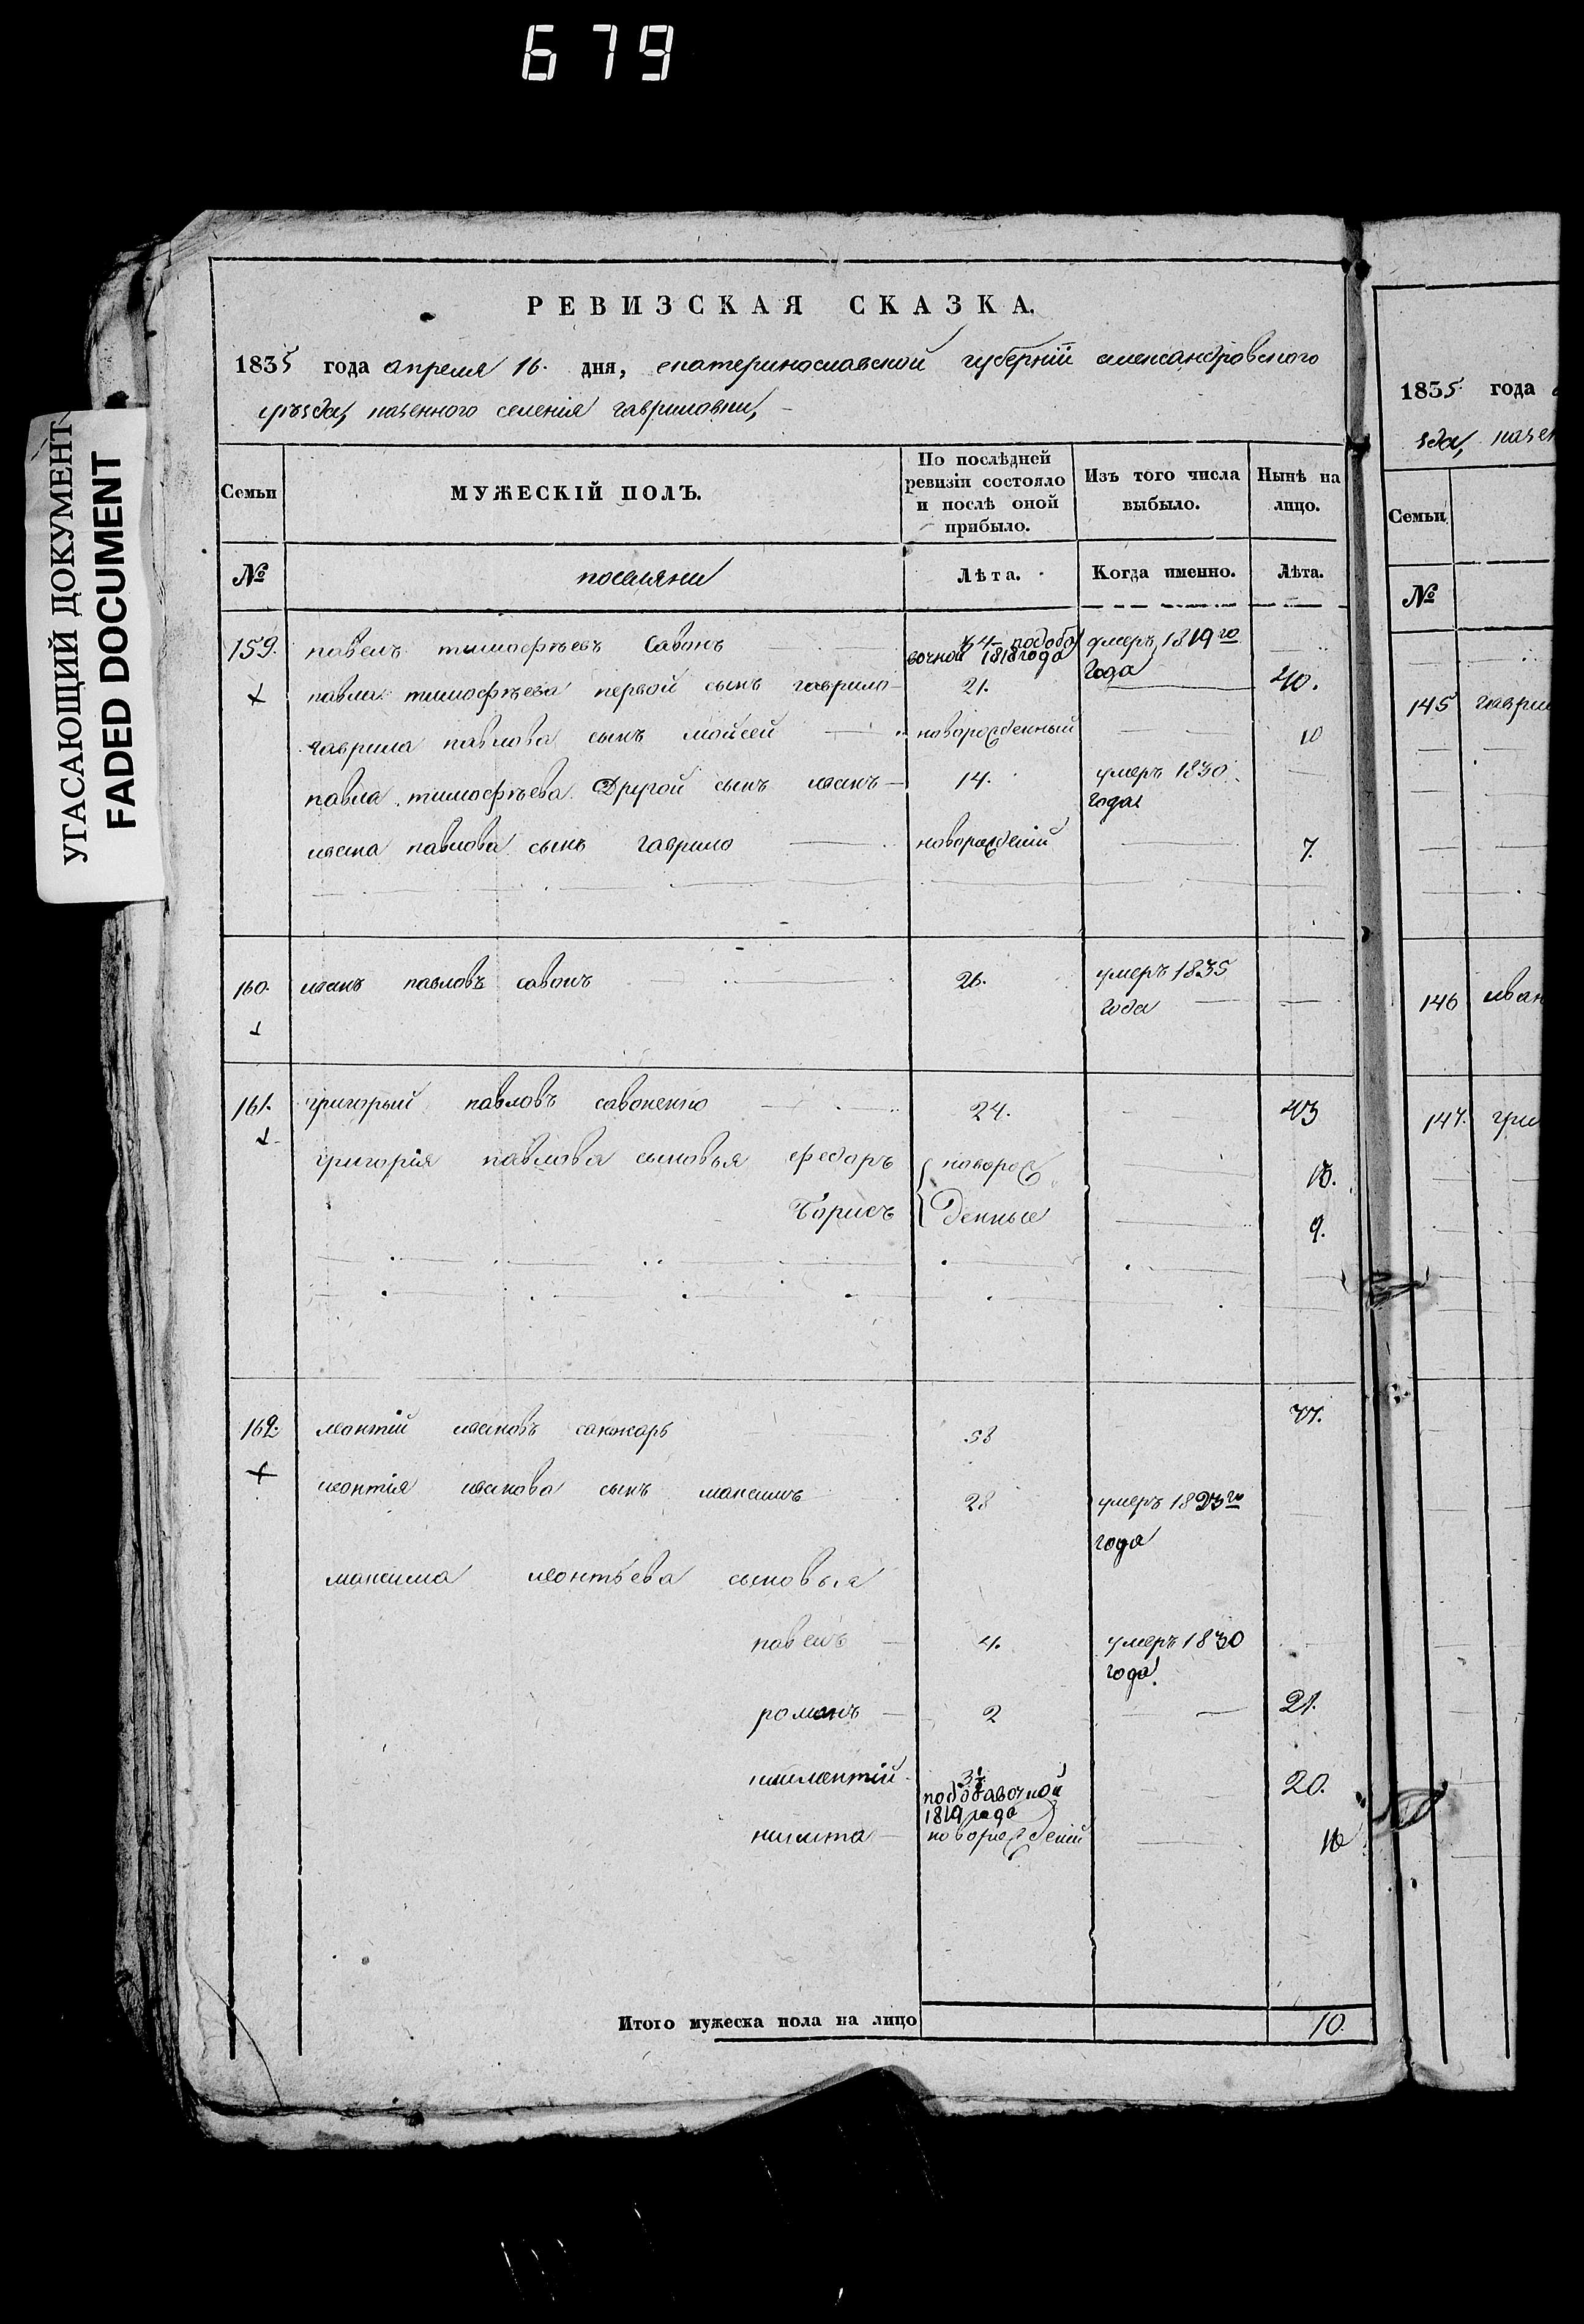 679
УГАСАЮЩИЙ ДОКУМЕНТ
FADED DOCUMENT
РЕВИЗСКАЯ СКАЗКА.
1835 года апреля 16. дня, екатеринославской губерніи александровского
уѣзда, казенного селенія гавриловки,
Семьи
МУЖЕСКІЙ ПОЛЪ.
По послѣдней ревизіи состояло и послѣ оной прибыло.
Изъ того числа выбыло.
Нынѣ на лицо.
№
поселяни
Лѣта.
Когда именно.
Лѣта.
159. павелъ тимофѣевъ Савонъ подоба вочной 1818 года умеръ 1819го года
павла тимофѣева первой сынъ гаврило 21. 40.
гаврила павлова сынъ мойсей новорожденный 10
павла тимофѣева Другой сынъ иванъ 14. умеръ 1830 года
ивана павлова сынъ гаврило новорожденій 7.
160. иванъ павловъ савонъ 26. умеръ 1835 года
161. григорый павловъ савоненко 24. 43
григорія павлова сыновья федоръ новорож 18.
Борисъ денные 9.
162. леонтій ивановъ санжаръ 58 77.
леонтія иванова сынъ максимъ 28 умеръ 1823го года
максима леонтьева сыновья
павелъ 4. умеръ 1830 года
романъ 2 21.
3½ подобавочной 1819 года 20.
никита новорожденій
Итого мужеска пола на лицо 10.
1835 года
зда, казен
Семьи
№
145 гаврил
146 иван
147. гри